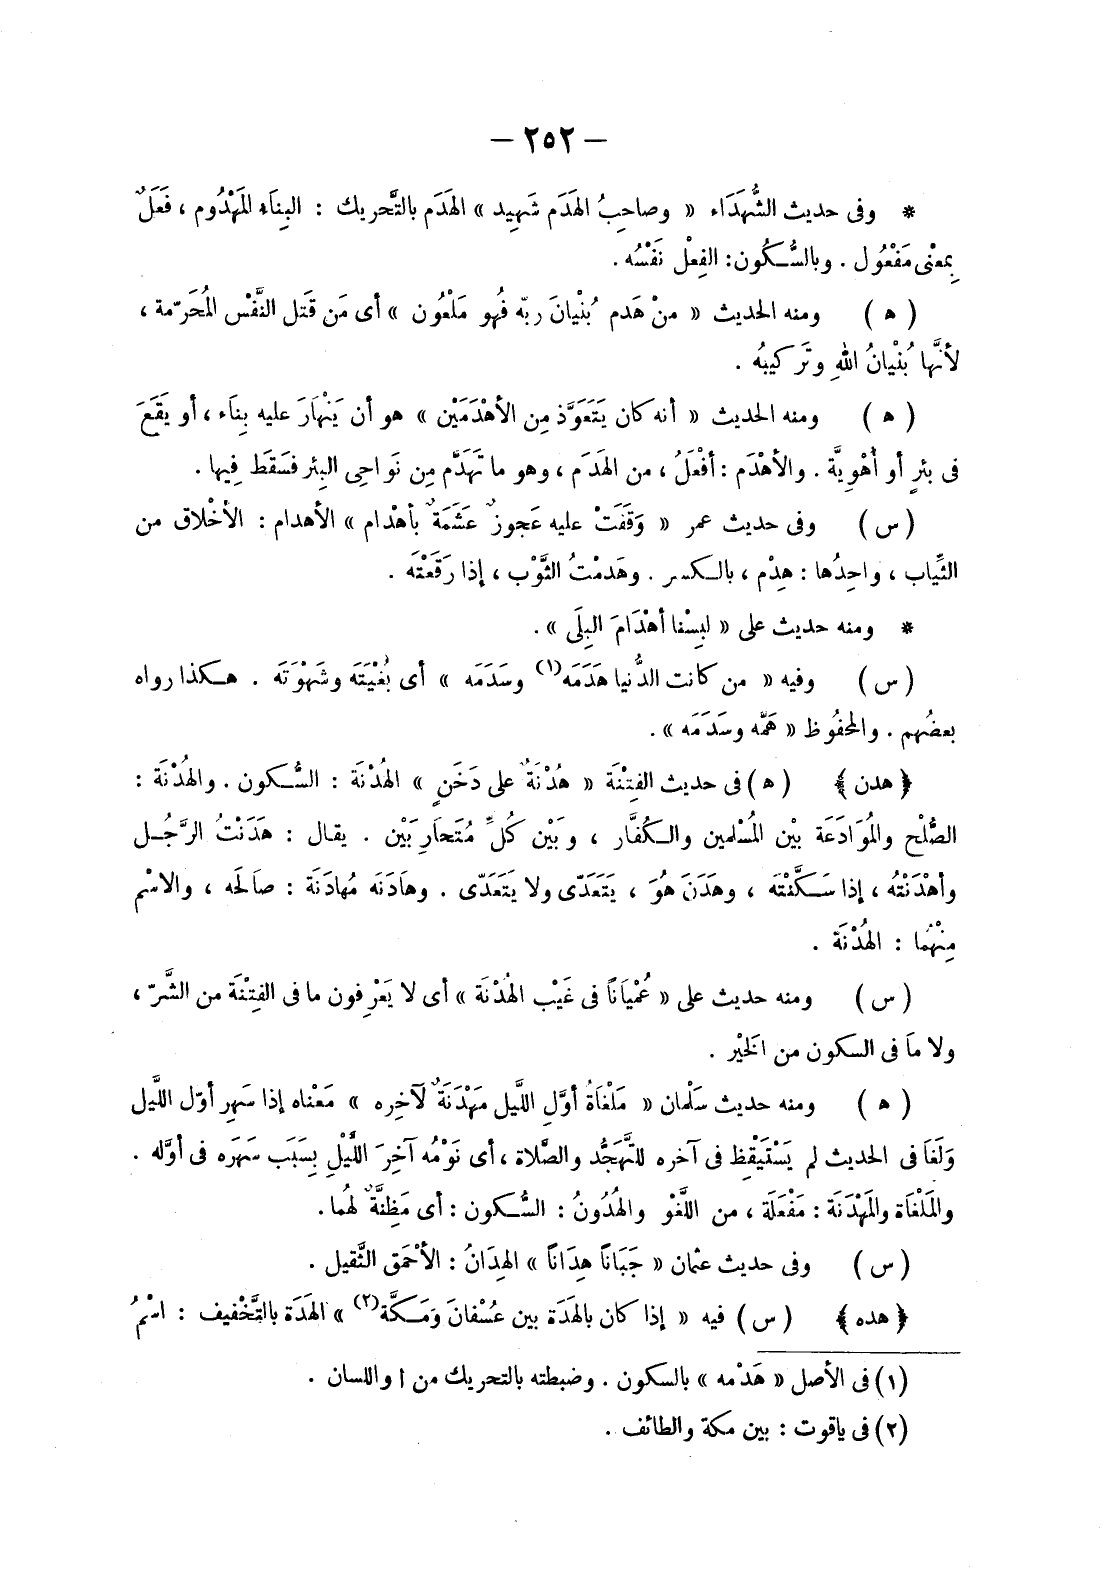 — ٢٥٢ —
* وفى حديث الشُّهَدَاء « وصاحِبُ الهَدَم شَهِيد » الهَدَم بالتَّحريك : البِناَء المَهْدُوم ، فَعَلٌ
بِمعْنى مَفْعُول . وبالسُّكُون: الفِعْل نَفْسُه .
( ه ) ومنه الحديث « منْ هَدم بُنْيانَ ربّه فهُو مَلْعُون » أى مَن قَتل النَّفْس المُحَرّمة ،
لأنَّها بُنْيانُ اللهِ وتَركيبُه .
( ه ) ومنه الحديث « أنه كان يَتَعَوَّذ مِن الأهْدَمَيْن » هو أن يَنْهارَ عليه بِنَاء ، أو يَقَعَ
فى بئرٍ أو أُهْوِيَّة . والأهْدَم : أفْعَلُ ، من الهَدَم ، وهو ما تَهدَّم مِن نَواحِى البِئر فسَقَط فِيها .
( س ) وفى حديث عمر « وَقَفَتْ عليه عَجوزٌ عَشَمَةٌ بأهْدام » الأهدام : الأخْلاق من
الثِّياب ، واحِدُها : هِدْم ، بالكسر . وهَدمْتُ الثَّوْب ، إذا رَقَعْتَه .
* ومنه حديث على « لبِسْنا أهْدَامَ البِلَى » .
( س ) وفيه « من كانت الدُّنيا هَدَمَه(١) وسَدَمَه » أى بُغْيَتَه وشَهْوَتَه . هكذا رواه
بعضُهم . والمحْفُوظ « هَمَّه وسَدَمَه » .
﴿ هدن ﴾ ( ه ) فى حديث الفِتْنَة « هُدْنَةٌ على دَخَنٍ » الهُدْنَة : السُّكون . والهُدْنَة :
الصُّلْح والمُوَادَعَة بيْن المُسْلمين والكُفَّار ، وبَيْن كُلِّ مُتَحارِبَيْن . يقال : هَدَنْتُ الرَّجُل
وأهْدَنْتُه ، إذا سَكَّنْتَه ، وهَدَنَ هُوَ ، يَتَعَدّى ولا يَتَعَدّى . وهَادَنَه مُهادَنَة : صالَحَه ، والاسْم
مِنْهُما : الهُدْنَة .
( س ) ومنه حديث على « عُمْيَاناً فى غَيْب الهُدْنَة » أى لا يَعْرِفون ما فى الفِتْنَة من الشَّرّ ،
ولا مَا فى السكون من الخَيْر .
( ه ) ومنه حديث سَلْمان « مَلْغَاةُ أوَّلِ اللَّيل مَهْدَنَةٌ لآخِرِه » مَعْناه إذا سَهِر أوّل اللَّيل
وَلَغَا فى الحديث لم يَسْتَيْقِظ فى آخره للتَّهَجُّد والصَّلاة ، أى نَوْمُه آخِرَ اللَّيْلِ بِسَبَب سَهَرَه فى أوَّله .
والمَلْغَاة والمَهْدَنَة : مَفْعَلَة ، من اللَّغْو والهُدُونُ : السُّكون : أى مَظِنَّةٌ لهُما .
( س ) وفى حديث عثمان « جَبَاناً هِدَاناً » الهِدَانُ : الأحْمَق الثَّقيل .
﴿ هده ﴾ ( س ) فيه « إذا كان بالهَدَة بين عُسْفانَ وَمَكَّة(٢) » الهَدَة بالتَّخْفيف : اسْمُ
(١) فى الأصل « هَدْمه » بالسكون . وضبطته بالتحريك من ا واللسان .
(٢) فى ياقوت : بين مكة والطائف .